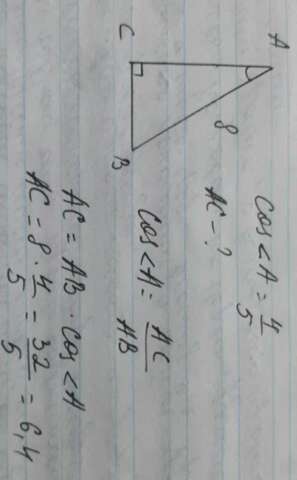 A
C
8
B
cos<A = 4/5
AC - ?
cos<A = AC/AB
AC = AB · cos<A
AC = 8 · 4/5 = 32/5 = 6,4